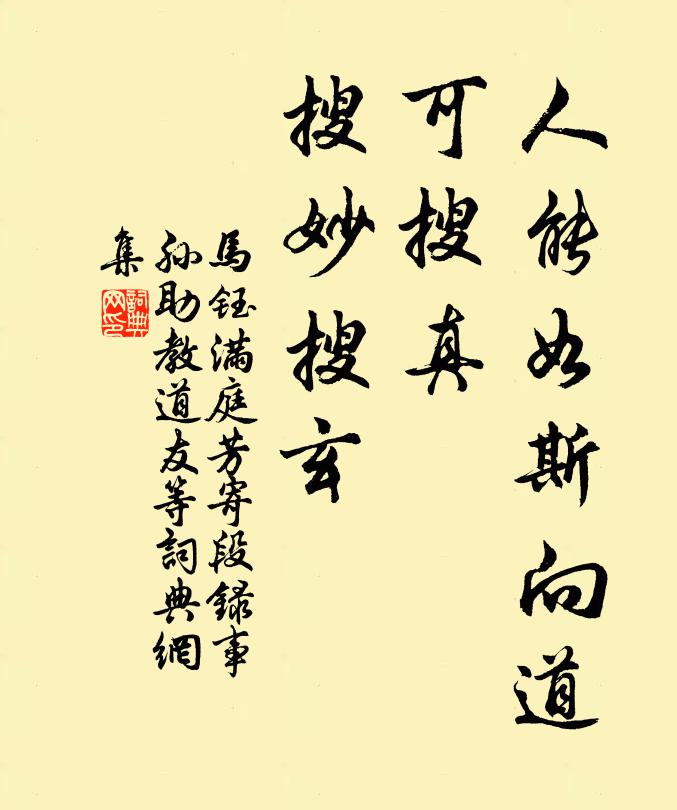 人能如斯向道
可搜真
搜妙搜玄
馬鈺滿庭芳寄段録事
孙助教道友等詞典網
集
詞典
网印